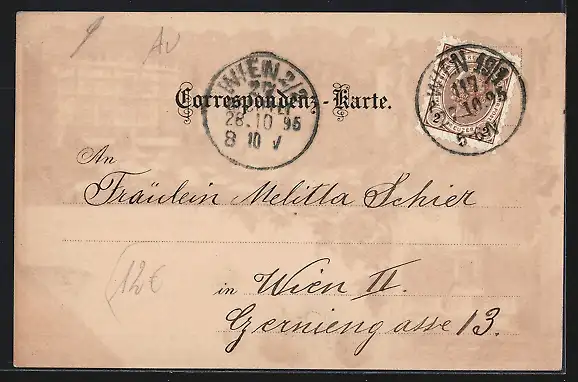 AV
WIEN 2/2
27
28.10 95
8 10 V
WIEN 19/2
117
.10.95
Correspondenz-Karte.
An
Fräulein Melitta Schier
in Wien II.
Czerniengasse 13.
12€